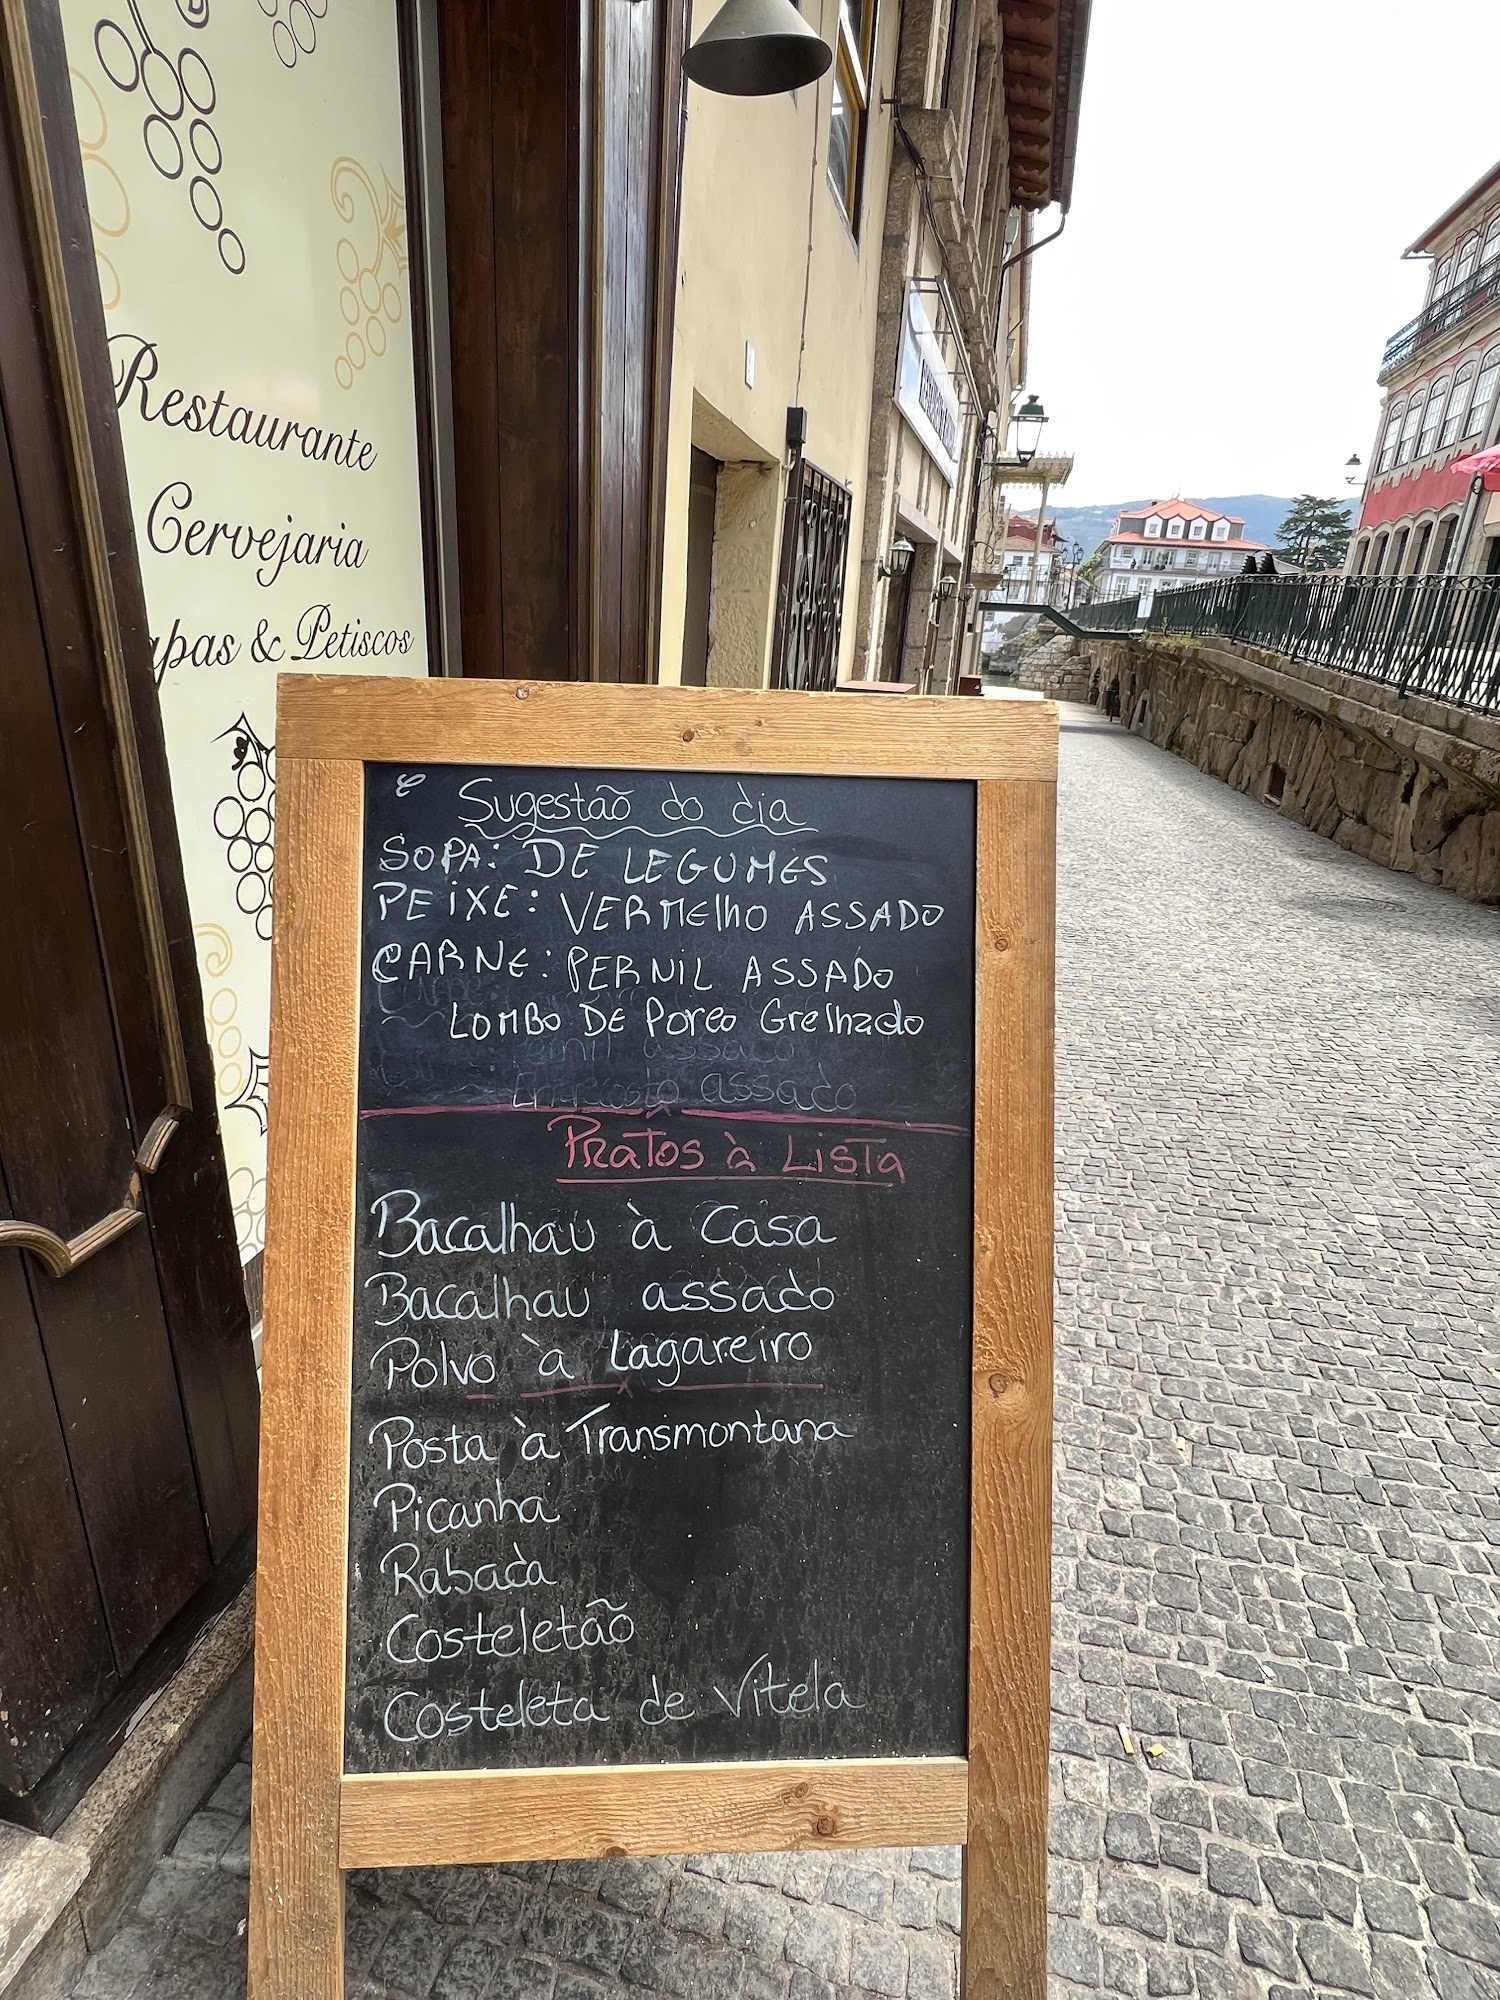 Restaurante
Cervejaria
& Petiscos
Sugestão do dia
SOPA: DE LEGUMES
PEIXE: VERMElhO ASSADO
CARNE: PERNIL ASSADO
LOMBO DE Porco Grelhado
assado
Pratos à Lista
Bacalhau à Casa
Bacalhau assado
Polvo à Lagareiro
Posta à Transmontana
Picanha
Rabada
Costeletão
Costeleta de Vitela